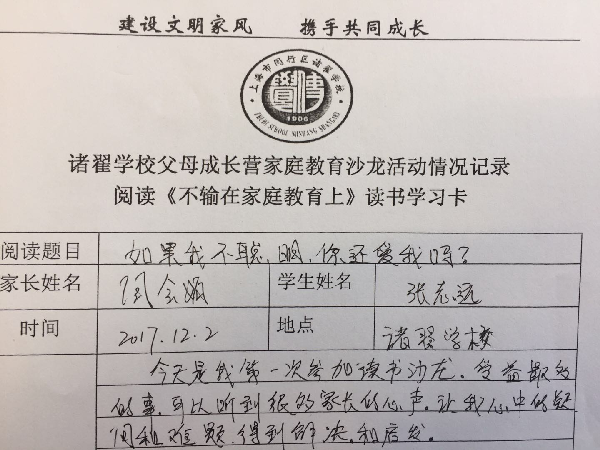 建设文明家风 携手共同成长
上海市闵行区诸翟学校
ZHUDI SCHOOL MINHANG SHANGHAI
1906
诸翟学校父母成长营家庭教育沙龙活动情况记录
阅读《不输在家庭教育上》读书学习卡
阅读题目 如果我不聪明,你还爱我吗?
家长姓名 学生姓名 张志远
时间 2017.12.2 地点 诸翟学校
今天是我第一次参加读书沙龙。受益最多
的事,可以听到很多家长的心声,让我心中的疑
问和难题,得到解决和启发。